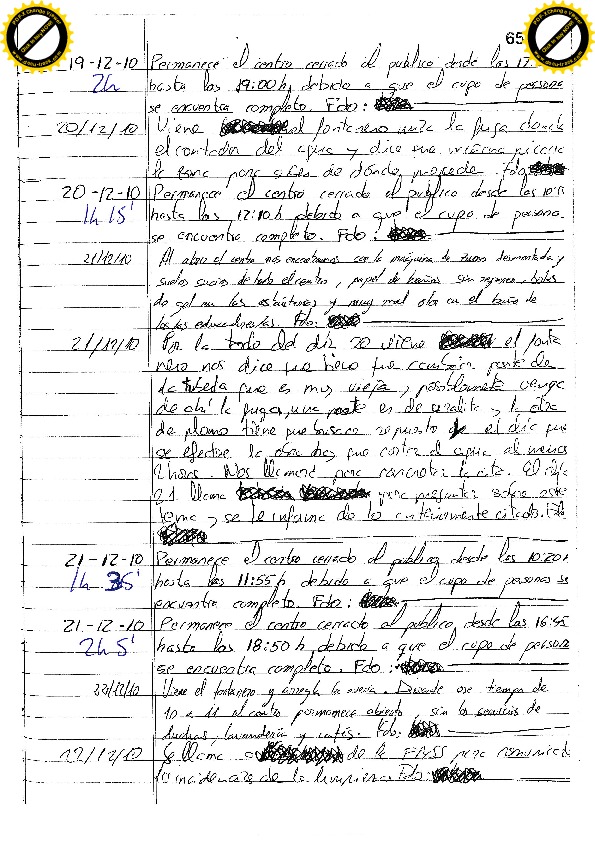 65
19-12-10 Permanece el centro cerrado al publico desde las 17
2h hasta las 19:00h, debido a que el cupo de persona
se encuentra completo. Fdo:
20/12/10 Viene el fontanero mira la fuga donde
el contador del agua y dice que
la zona para saber de dónde procede. Fdo
20-12-10 Permanece el centro cerrado al publico desde las
1h 15' hasta las 12:10h debido a que el cupo de persona
se encuentra completo. Fdo:
21/12/10 Al abrir el centro nos encontramos con la máquina de zumos desmontada y
suelos sucios de todo el centro, papel de baños sin reponer, botes
de gel en las estanterias y muy mal olor en el baño de
los/as educadores/as. Fdo:
21/12/10 Por la tarde del día 20 viene el fonta
nero nos dice que tiene que cambiar parte de
la tuberia que es muy vieja, posiblemente venga
de ahí la fuga, una parte es de uralita y la otra
de plomo tiene que buscar repuesto y el dia que
se efectue la obra hay que cortar el agua al menos
2 horas. Nos llamará para concretar la cita. El
21 llama para preguntar sobre este
tema y se le informa de lo anteriormente citado. Fdo
21-12-10 Permanece el centro cerrado al publico desde las 10:20h
1h 35' hasta las 11:55h debido a que el cupo de personas se
encuentra completo. Fdo:
21-12-10 Permanece el centro cerrado al publico desde las 16:45
2h 5' hasta las 18:50h debido a que el cupo de persona
se encuentra completo. Fdo:
22/12/10 Viene el fontanero y arregla la averia. Durante ese tiempo de
10 a 11 el centro permanece abierto, sin los servicios de
duchas, lavandería y cafés. Fdo:
22/12/10 Se llama a de la FRSS para comunicar
incidencias de la limpieza. Fdo: